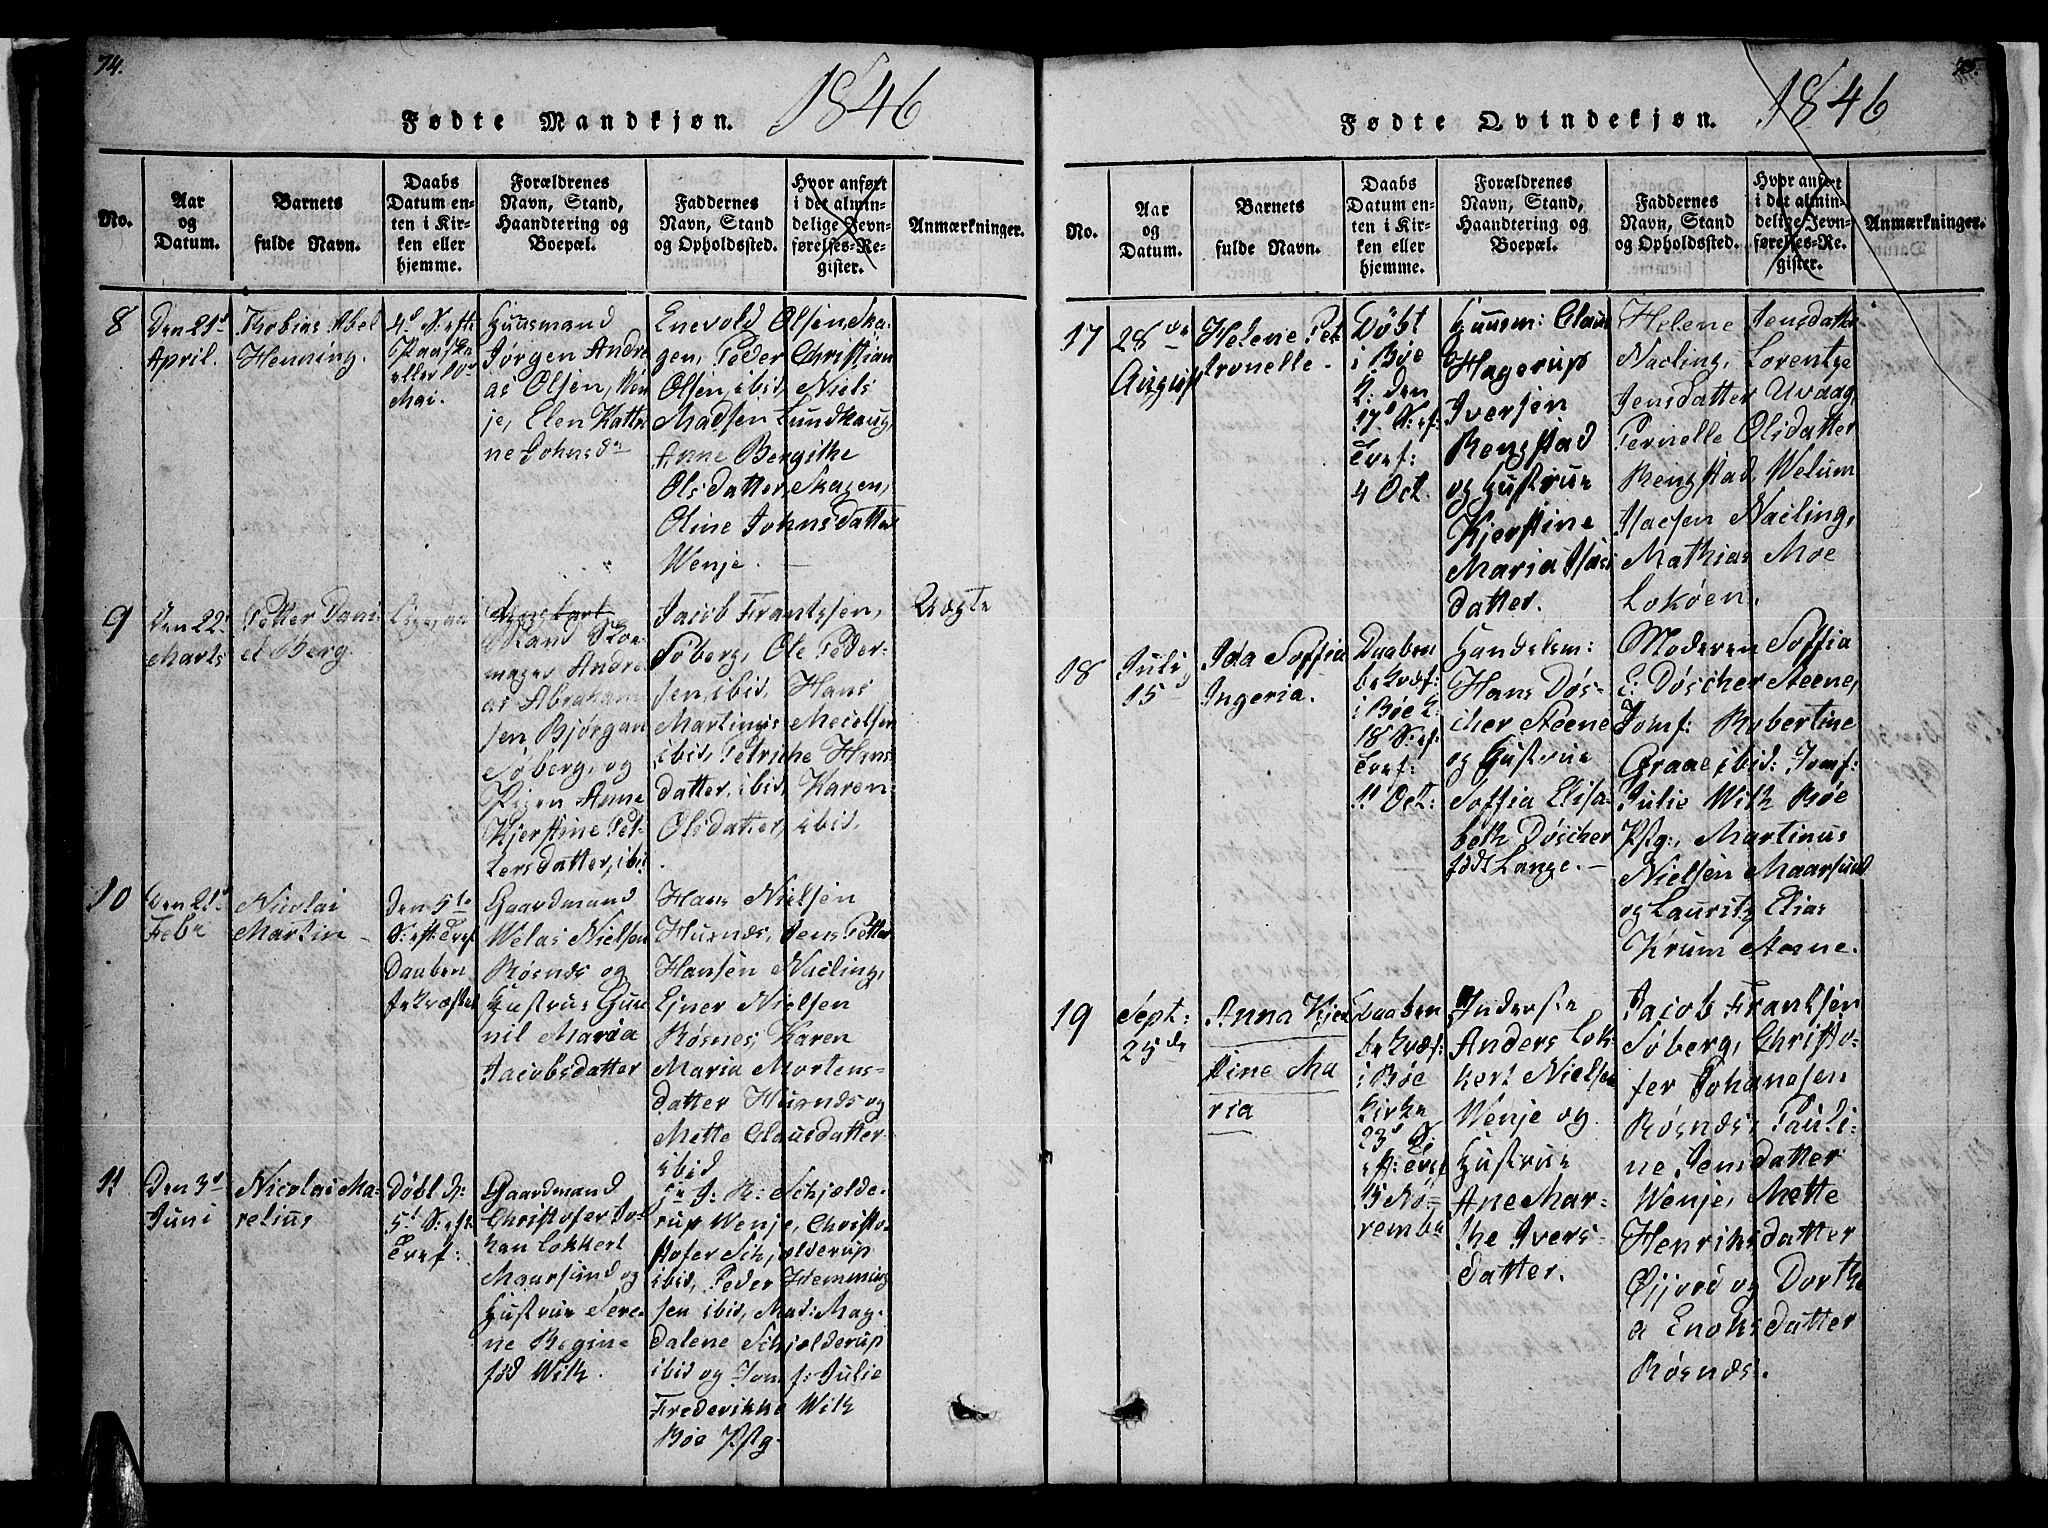 74.
Fødte Mandkjøn. 1846
No.
Aar
og
Datum.
Barnets
fulde Navn.
Daabs
Datum en-
ten i Kir-
ken eller
hjemme.
Forældrenes
Navn, Stand,
Haandtering og
Boepæl.
Faddernes
Navn, Stand
og Opholdssted.
Hvor anført
i det almin-
delige Jevn-
førelses-Re-
gister.
Anmærkninger.
8
Den 21d
April.
Thobias Abel
Henning.
4d S: efte
Paaske
eller 10d
Mai.
Huusmand
Jørgen Andre
as Olsen, Wen
je, Elen Kathr
ne Johnsdr
Enevold Olsen Ska-
gen, Peder Christian
Olsen, ibid, Niels
Madsen Lundhaug,
Anne Bergithe
Olsdatter Skagen,
Oline Johnsdatter
Wenje.
9
Den 22d
Marts
Petter Dani
el Berg.
Mand Skoe-
mager Andre
as Abraham
sen Bjørgan
Søberg, og
Pigen Anne
Kjerstine Pet-
tersdatter, ibi:
Jacob Frantssen,
Søberg, Ole Peder-
sen, ibid, Hans
Martinus Mecelsen
ibid, Petriche Hans
datter, ibid, Karen
Olsdatter, ibid.
Uægte
10
Den 21d
Febr
Nicolai
Martin
Den 5te
S: eft: Tref
Daaben
bekræftet
Gaardmand
Welas Nielsen
Røsnæs og
Hustrue Gun
nil Maria
Jacobsdatter
Hans Nielsen
Husnæs, Jens Petter
Hansen Nacling,
Ejner Nielsen
Røsnes, Karen
Maria Mortens-
datter Husnæs og
Mette Clausdatter
ibid
11
Den 3d
Juni
Nicolai Ma-
relius
Døbt d:
5d S: eft
Tref:
Gaardmand
Christofer Jo-
han Lokkert
Maarsund og
Hustrue Sere-
ne Regine
fød With.
Hr J. R: Schjelde-
rup Wenje, Christo-
ffer Schjelderup
ibid, Peder Hemming
sen ibid, Mad: Mag-
dalene Schjelderup
ibid og Jomf: Julie
Frederikke With
Bøe Pstg.
75.
Fødte Qvindekjøn. 1846
No.
Aar
og
Datum.
Barnets
fulde Navn.
Daabs
Datum en-
ten i Kir-
ken eller
hjemme.
Forældrenes
Navn, Stand,
Haandtering og
Boepæl.
Faddernes
Navn, Stand
og Opholdssted.
Hvor anført
i det almin-
delige Jevn-
førelses-Re-
gister.
Anmærkninger.
17
28de
August
Helene Pet
tronelle.
Døbt
i Bøe
K: den
17d S: ef:
Tref:
4 Oct.
Huusm: Claus
Hagerup
Iversen
Rengstad
og Hustrue
Kjerstine
Maria Isacs
datter.
Helene Jensdatter
Nacling, Lorentze
Jensdatter Uvaag,
Pernelle Olsdatter
Rengstad, Welum
Isacsen Nacling,
Mathias Moe
Lokøen.
18
Juli,
15d
Ida Soffia
Ingeria.
Daaben
bekræf:
i Bøe K
18 S: ef:
Tref:
11 Oct:
Handelsm:
Hans Døs-
cher Steene
og Hustrue
Soffia Elisa-
beth Døscher
født Lange.
Moderen Soffia
E: Døscher Steene,
Jomf: Robertine
Graae, ibid: Jomf:
Julie With Bøe
Pstg:, Martinus
Nielsen Maarsund
og Lauritz Elias
Krum Steene.
19
Sept:
25de
Anna Kjer
stine Ma
ria
Daaben
bekræf:
i Bøe
Kirke
23d S:
eft: Tref
15 No-
vember
Inderste
Anders Lok-
kert Nielsen
Wenje og
Hustrue
Ane Mar-
the Ivers-
datter.
Jacob Frantsen
Søberg, Christo-
fer Johanesen
Røsnæs, Pauli-
ne Jensdatter
Wenje, Mette
Henriksdatter
Gjjord og Dorthe
a Enoksdatter
Røsnæs.